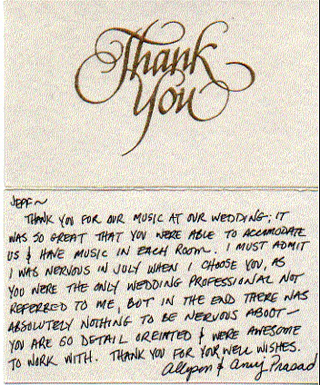 Thank
You
JEFF~
THANK YOU FOR OUR MUSIC AT OUR WEDDING; IT
WAS SO GREAT THAT YOU WERE ABLE TO ACCOMODATE
US & HAVE MUSIC IN EACH ROOM. I MUST ADMIT
I WAS NERVOUS IN JULY WHEN I CHOOSE YOU, AS
YOU WERE THE ONLY WEDDING PROFESSIONAL NOT
REFERRED TO ME, BUT IN THE END THERE WAS
ABSOLUTELY NOTHING TO BE NERVOUS ABOUT—
YOU ARE SO DETAIL ORIENTED & WERE AWESOME
TO WORK WITH. THANK YOU FOR YOUR WELL WISHES.
Allyson & Anuj Prasad